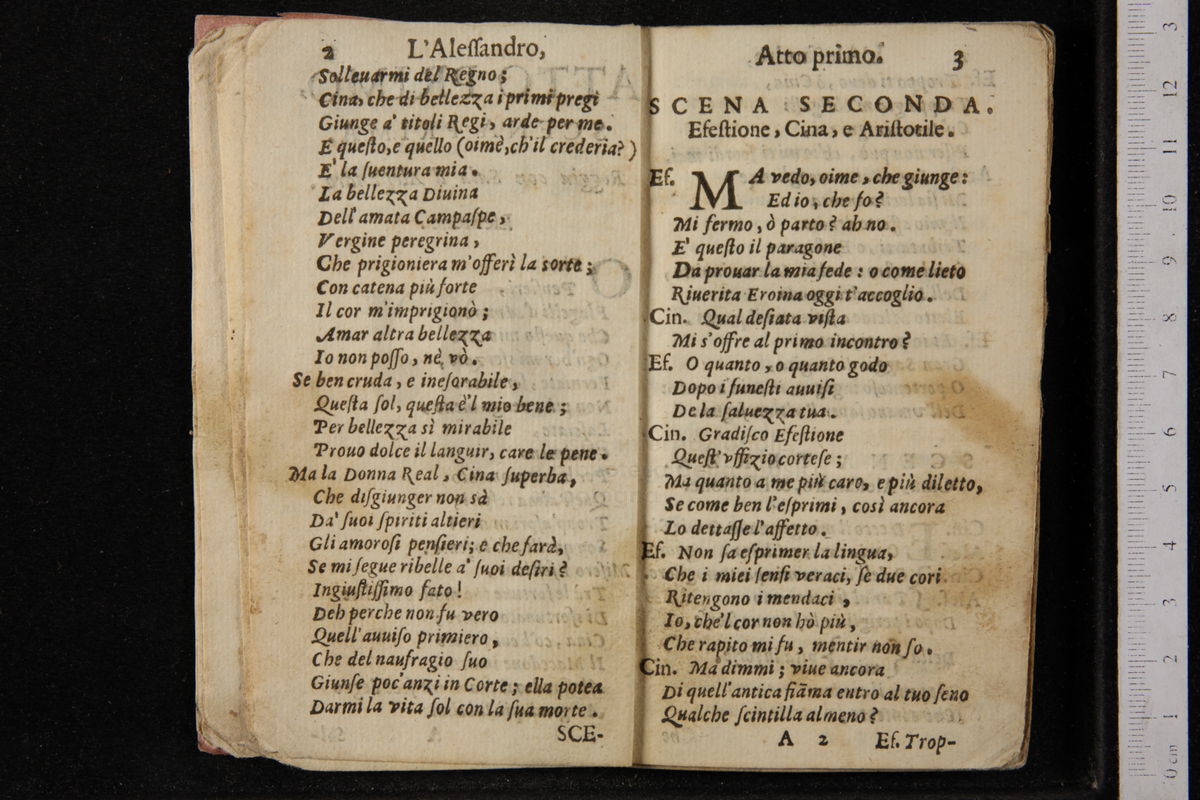 2 L'Aleſſandro,
Solleuarmi del Regno;
Cina, che di bellezza i primi pregi
Giunge a' titoli Regi, arde per me.
E queſto, e quello (oimè, ch'il crederia?)
E' la ſuentura mia.
La bellezza Diuina
Dell'amata Campaſpe,
Vergine peregrina,
Che prigioniera m'offerì la sorte;
Con catena più forte
Il cor m'imprigionò;
Amar altra bellezza
Io non poſſo, nè vò.
Se ben cruda, e ineſorabile,
Queſta ſol, queſta è'l mio bene;
Per bellezza sì mirabile
Prouo dolce il languir, care le pene.
Ma la Donna Real, Cina ſuperba,
Che diſgiunger non sà
Da' ſuoi ſpiriti altieri
Gli amoroſi penſieri; e che farà,
Se mi ſegue ribelle a' ſuoi deſiri?
Ingiuſtiſſimo fato!
Deh perche non fu vero
Quell'auuiſo primiero,
Che del naufragio ſuo
Giunſe poc'anzi in Corte; ella potea
Darmi la vita ſol con la ſua morte.
SCE-
Atto primo. 3
SCENA SECONDA.
Efeſtione, Cina, e Ariſtotile.
Ef. MA vedo, oime, che giunge:
Ed io, che fo?
Mi fermo, ò parto? ah no.
E' queſto il paragone
Da prouar la mia fede: o come lieto
Riuerita Eroina oggi t'accoglio.
Cin. Qual deſiata viſta
Mi s'offre al primo incontro?
Ef. O quanto, o quanto godo
Dopo i funeſti auuiſi
De la ſaluezza tua.
Cin. Gradiſco Efeſtione
Queſt'vffizio corteſe;
Ma quanto a me più caro, e più diletto,
Se come ben l'eſprimi, così ancora
Lo dettaſſe l'affetto.
Ef. Non ſa eſprimer la lingua,
Che i miei ſenſi veraci, ſe due cori
Ritengono i mendaci,
Io, che'l cor non hò più,
Che rapito mi fu, mentir non ſo.
Cin. Ma dimmi; viue ancora
Di quell'antica fiãma entro al tuo ſeno
Qualche ſcintilla almeno?
A 2 Ef. Trop-